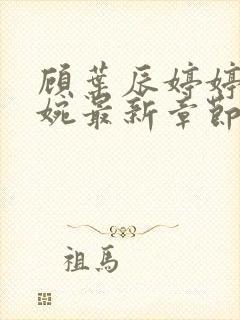 顾叶辰婷婷
婉最新章节
祖馬